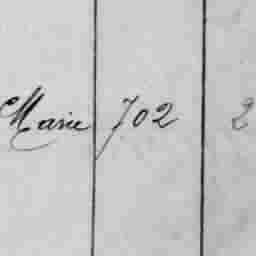 Marie 702 2